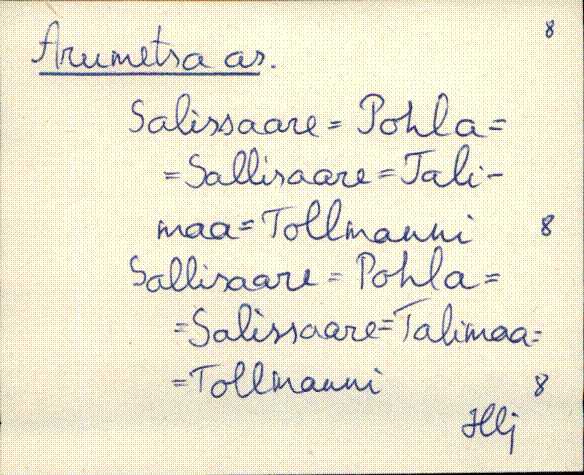 8
Arumetsa as.
Salissaare = Pohla =
= Sallisaare = Tali-
maa = Tollmanni 8
Sallisaare = Pohla =
= Salissaare = Talimaa =
= Tollmanni 8